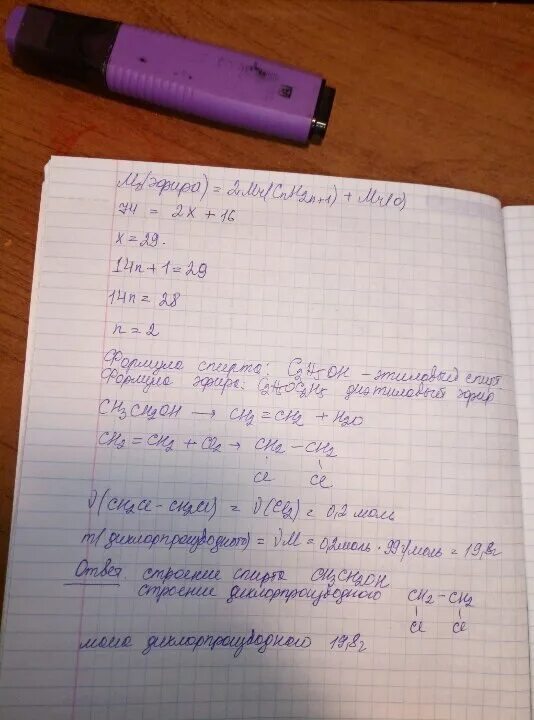 Mr(эфира) = 2Mr(CnH2n+1) + Mr(O)
74 = 2x + 16
x = 29.
14n + 1 = 29
14n = 28
n = 2
Формула спирта: C2H5OH - этиловый спирт
Формула эфира: C2H5OC2H5 диэтиловый эфир
CH3CH2OH → CH2 = CH2 + H2O
CH2 = CH2 + Cl2 → CH2 - CH2
Cl Cl
ν(CH2Cl - CH2Cl) = ν(Cl2) = 0,2 моль
m(дихлорпроизводного) = νM = 0,2моль · 99г/моль = 19,8г
Ответ: строение спирта CH3CH2OH
строение дихлорпроизводного CH2 - CH2
Cl Cl
масса дихлорпроизводного 19,8г